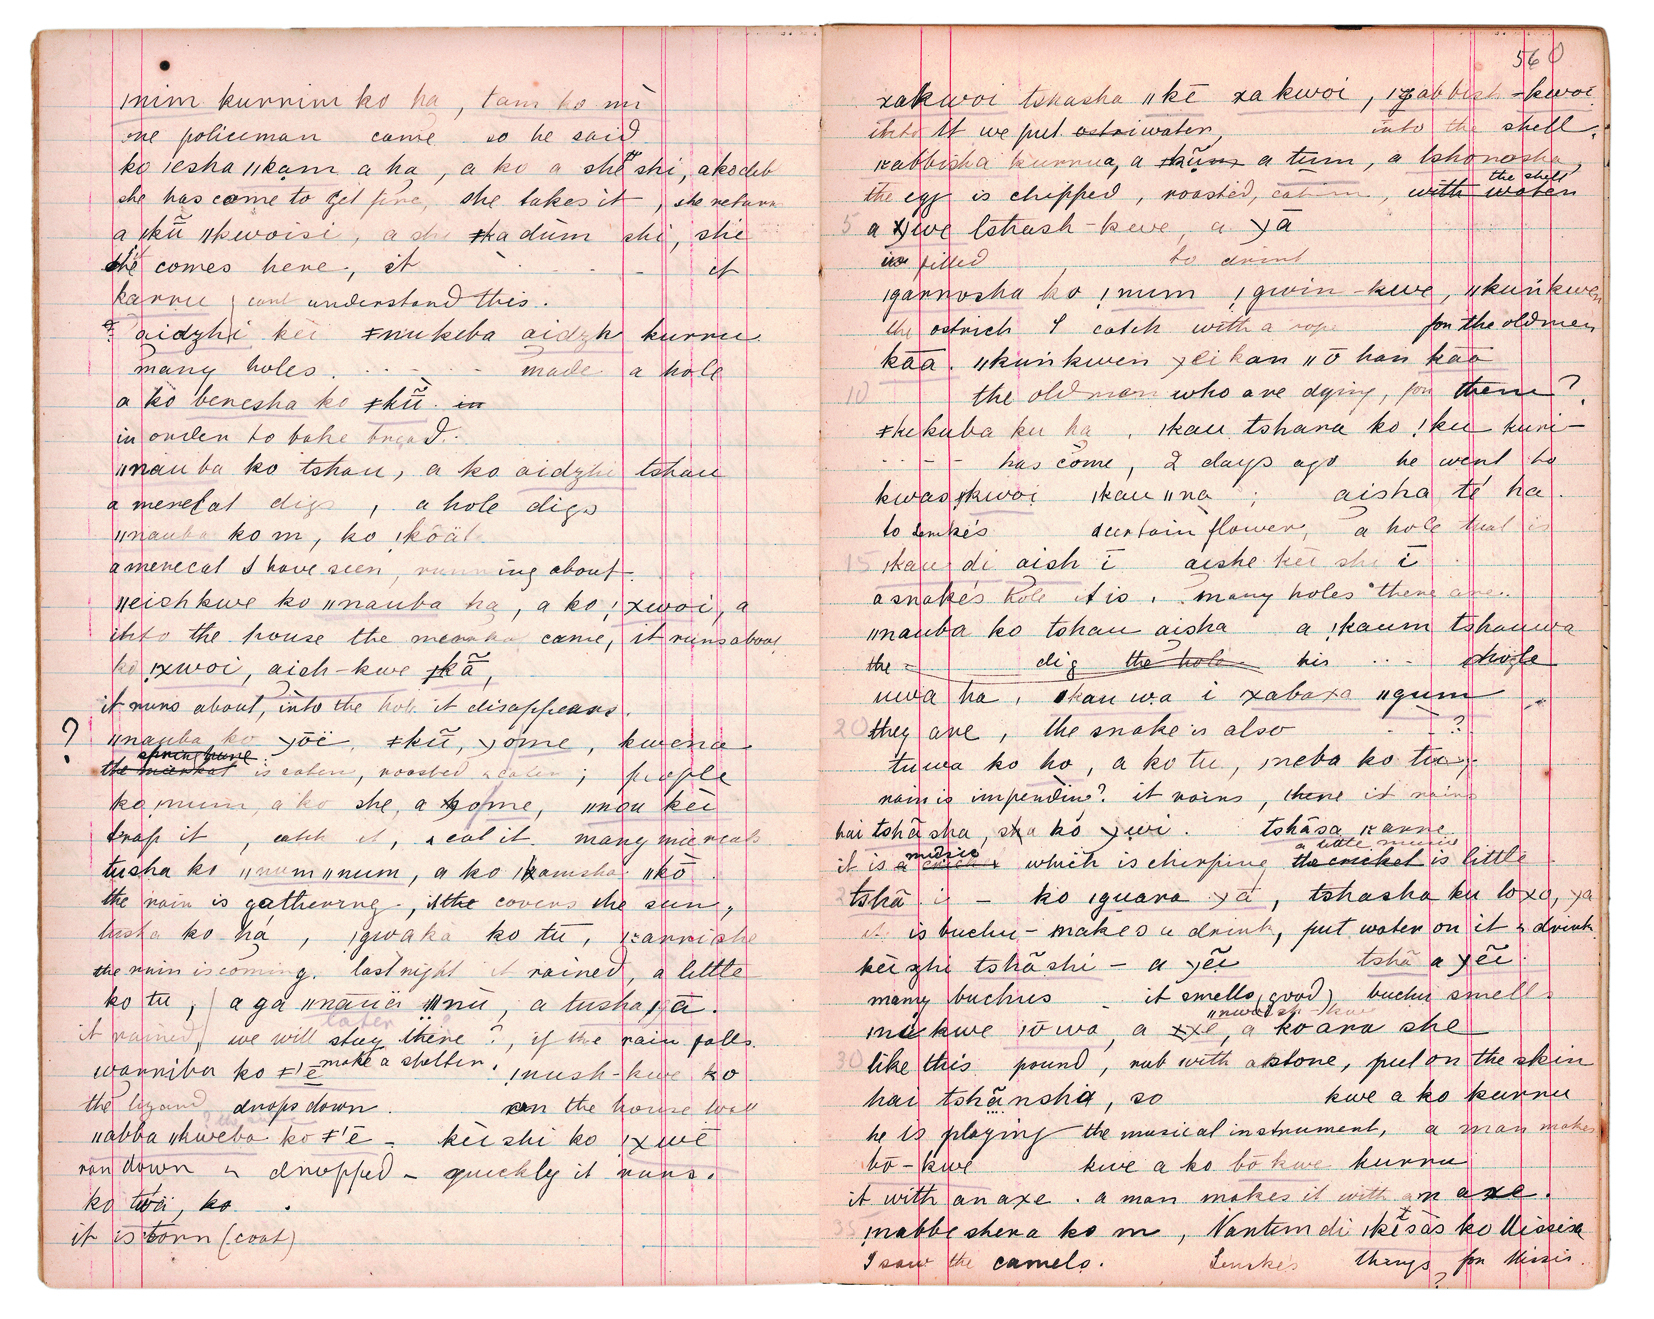 ınim kurrim ko ha, tam ko mi
one policeman came so he said
ko ıesha ǁkam a ha, a ko a she shi, akodeb
she has come to get fire, she takes it, she return
a ıkũ ǁkwoisi, a she ǂka dūm shi, she
she comes here, it - - - it
karru cant understand this.
? aidzhi kei ǂnukeba aidzh kurru
many holes . - - - made a hole
a ko benesha ko ǂkũ. in
in order to bake bread.
ǁnauba ko tshau, a ko aidzhi tshau
a merecat digs, a hole digs
ǁnauba ko m, ko ıkōät
a merecat I have seen, running about.
ǁeishkwe ko ǁnauba ha, a ko ǃxwoi, a
into the house the came, it runs about
ko ǃxwoi, aish-kwe ǂkã,
it runs about, into the hole it disappears.
? ǁnauba ko ɣōë, ǂkũ, ɣome, kwena
the merekat springhare is eaten, roasted & eaten; people
ko mum, a ko she, a ɣome, ǁnau kei
trap it, catch it, & eat it. many miercats
tusha ko ǁnumǁnum, a ko ıkamsha ǁkō
the rain is gathering, it the covers the sun,
tusha ko há, ıgwaka ko tū, ıkarrishe
the rain is coming. last night it rained, a little
ko tu, a ga ǁnāüë ǁnū, a tusha ɣā.
it rained, we will stay there later?, if the rain falls.
warriba ko ǂ'ē make a shelter. ınush-kwe ko
the lizard drops down. on the house wall
ǁabba ǁkweba ko ǂ'ē - kèi shi ko ǃxwē
ran down & dropped - quickly it runs.
ko twa, ko .
it is torn (coat)
560
xakwoi tshasha ǁkē xakwoi, ıgabbish-kwoi
into it we put ostri water, into the shell.
ıkabbisha kurrua, a ǂkũm a tum, a tshonosha,
the egg is chipped, roasted, eaten, with water the shell
5 a ɣwe tshash-kwe, a ɣā
is filled to drink
ıgarrosha ko ǃnum ǃgwin-kwe, ǁkuṅkwen
the ostrich I catch with a rope for the old men
kāā. ǁkuṅkwen ɣei kan ǁō han kāā
10 the old men who are dying, for them?
ǂkekuba ku ha, ıkau tshara ko ǃku kuri-
- - - has come, 2 days ago he went to
kwas ıkwoi ıkau ǁna ; aisha té ha.
to Lenke's a certain flower, a hole that is
15 ıkau di aish ī aishe kèi shi ī
a snake's hole it is. many holes there are.
ǁnauba ko tshau aisha a ıkaum tshauwa
the - dig the hole his ... hole
uwa ha, ıkau wa i xabaxa ǁgum
20 they are, the snake is also - - ?
tuwa ko ho, a ko tu, ıneba ko tu
rain is impending? it rains, there it rains
hai tshāsha, sha ko ɣwi. tshāsa ıkarre
it is a music which is chirping the cricket a little music is little
tshā i - ko ıguara ɣā, tshasha ku loxo, ɣa
it is buchu - makes a drink, put water on it & drink
kèi zhi tshāshi - a ɣẽi tshā a ɣẽi
many buchus - it smells (good), buchu smells
ına kwe ıō wa, a xxe, a ko ara she
30 like this pound, rub with a stone, put on the skin
hai tshānsha, so kwe a ko kurru
he is playing the musical instrument, a man makes
bō-kwe kwe a ko bōkwe kurru
it with an axe. a man makes it with an axe.
35 ınabbeshera ko m, Nantum di ıkēsàs ko Missis
I saw the camels. Lenke's things for Missis.